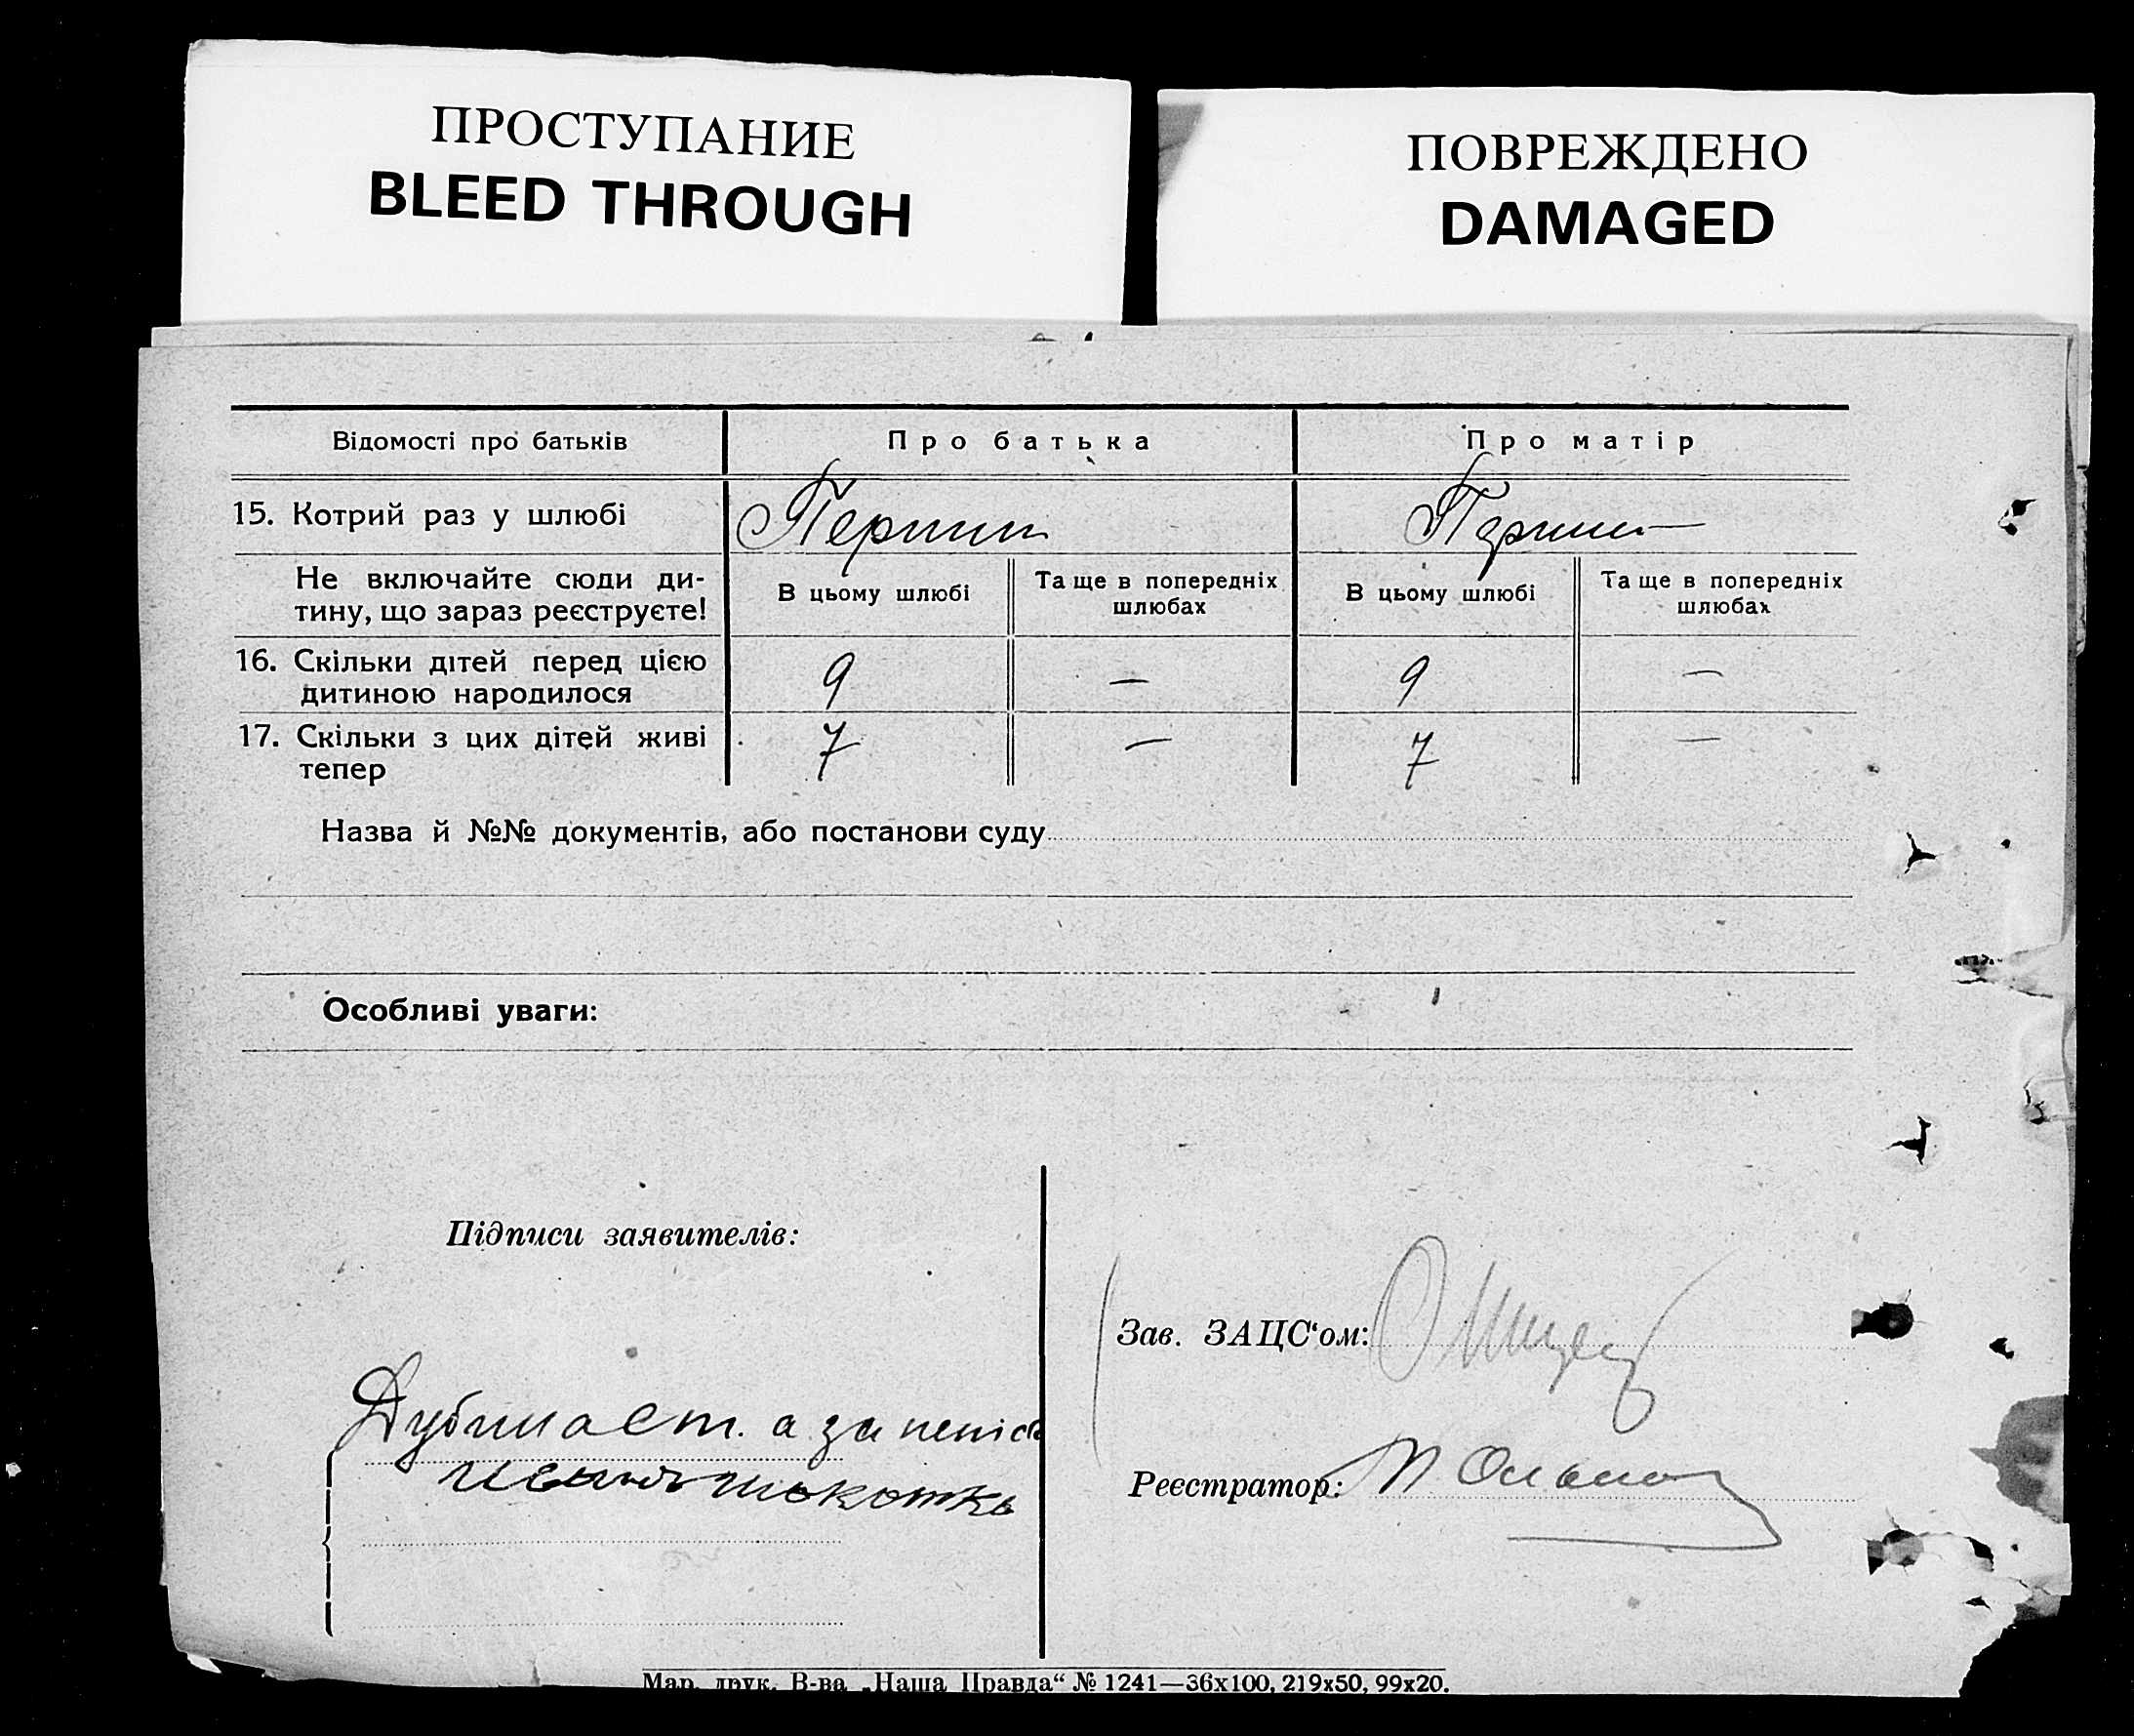 ПРОСТУПАНИЕ
BLEED THROUGH
ПОВРЕЖДЕНО
DAMAGED
Відомості про батьків
Про батька
Про матір
15. Котрий раз у шлюбі
Перший
Перший
Не включайте сюди ди-
тину, що зараз реєструєте!
В цьому шлюбі
Та ще в попередніх
шлюбах
В цьому шлюбі
Та ще в попередніх
шлюбах
16. Скільки дітей перед цією
дитиною народилося
9
—
9
—
17. Скільки з цих дітей живі
тепер
7
—
7
—
Назва й №№ документів, або постанови суду
Особливі уваги:
Підписи заявителів:
а за
Зав. ЗАЦС‘ом:
Реєстратор:
Мар. друк. В-ва „Наша Правда“ № 1241—36х100, 219х50, 99х20.